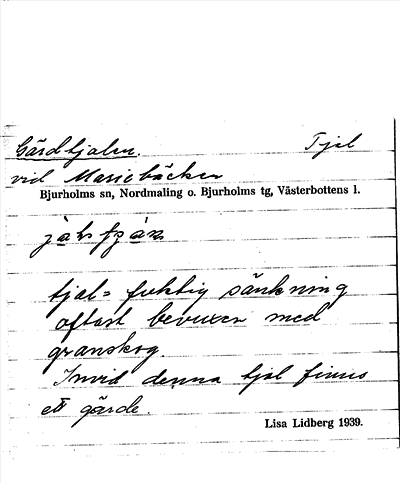 Gärdtjalen. Tjal
vid Mariebäcken
Bjurholms sn, Nordmaling o. Bjurholms tg, Västerbottens l.
tjal = fuktig sänkning
oftast bevuxen med
granskog.
Invid denna tjal finns
ett gärde.
Lisa Lidberg 1939.